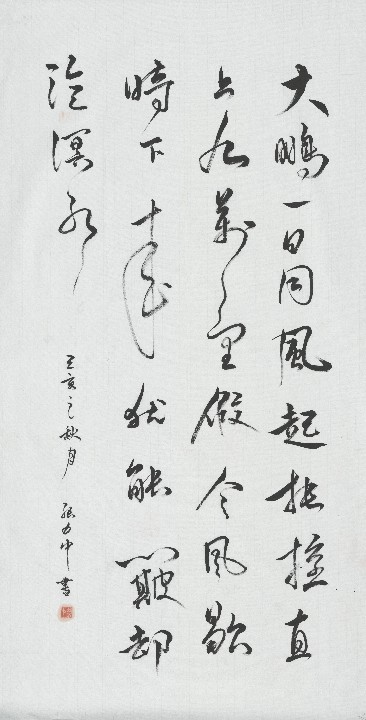 大鵬一日同風起扶搖直
上九萬里假令風歇
時下來猶能簸却
滄溟水
己亥之秋月 張力中書